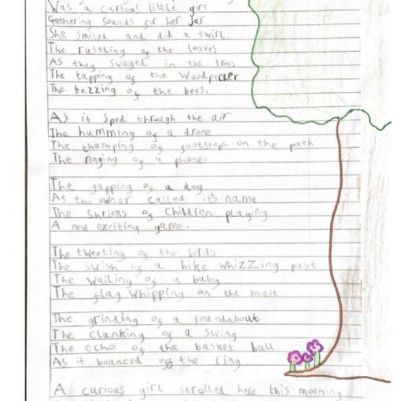 Was a curious little girl
Gathering sounds for her jar
She smiled and did a twirl.
The rustling of the leaves
As they swayed in the trees
The tapping of the Woodpecker
The buzzing of the bees.
As it sped through the air
The humming of a drone
The thumping of footsteps on the path
The ringing of a phone.
The yapping of a dog
As the owner called its name
The Shrieks of Children playing
A new exciting game.
The tweeting of the birds
The swish of a bike whizzing past
The wailing of a baby
The flag whipping on the mast
The grinding of a roundabout
The clanking of a swing
The echo of the basket ball
As it bounced off the ring
A curious girl strolled here this morning